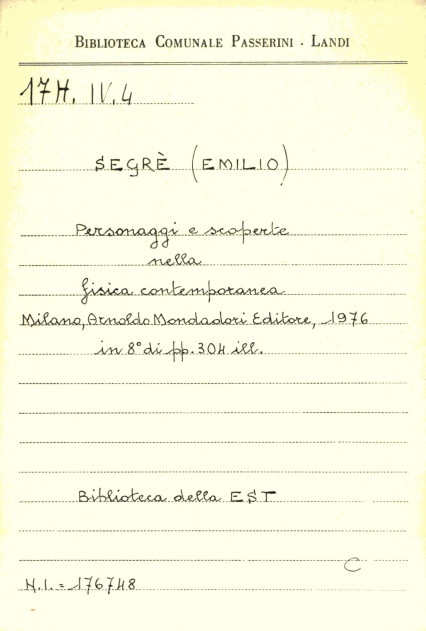 BIBLIOTECA COMUNALE PASSERINI - LANDI
17H. IV. 4
SEGRÈ (EMILIO)
Personaggi e scoperte
nella
fisica contemporanea
Milano, Arnoldo Mondadori Editore, 1976
in 8° di pp. 304 ill.
Biblioteca della EST
C
N.I. = 176748